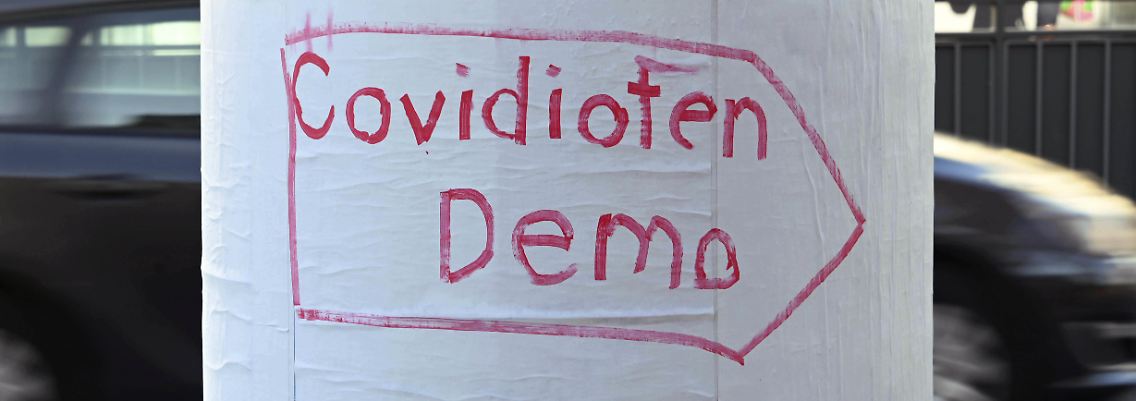 Covidioten
Demo